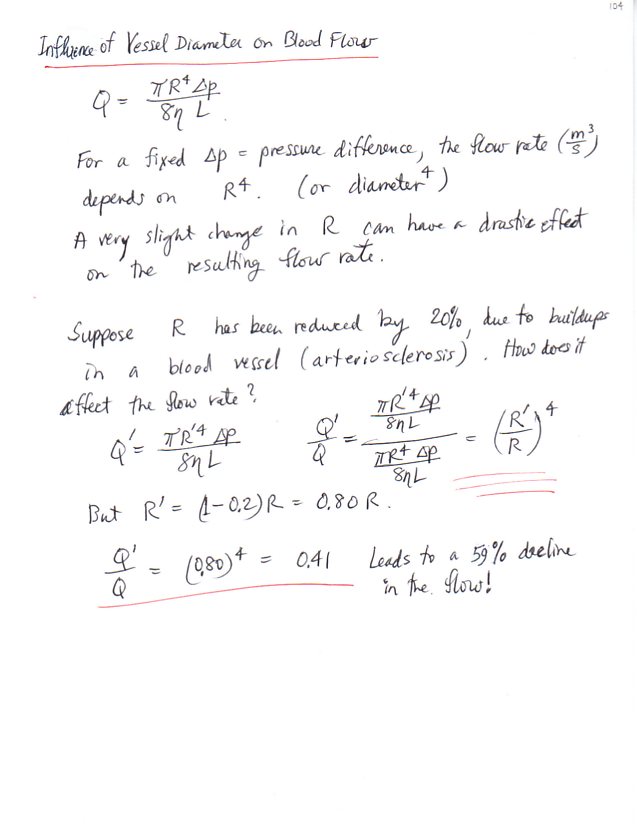 104
Influence of Vessel Diameter on Blood Flow
Q = πR⁴ Δp / 8η L
For a fixed Δp = pressure difference, the flow rate (m³/s)
depends on R⁴. (or diameter⁴)
A very slight change in R can have a drastic effect
on the resulting flow rate.
Suppose R has been reduced by 20%, due to buildups
in a blood vessel (arteriosclerosis). How does it
affect the flow rate?
Q′ = πR′⁴ Δp / 8η L    Q′/Q = (πR′⁴ Δp / 8ηL) / (πR⁴ Δp / 8ηL) = (R′/R)⁴
But R′ = (1-0.2)R = 0.80 R.
Q′/Q = (0.80)⁴ = 0.41 Leads to a 59% decline
in the flow!